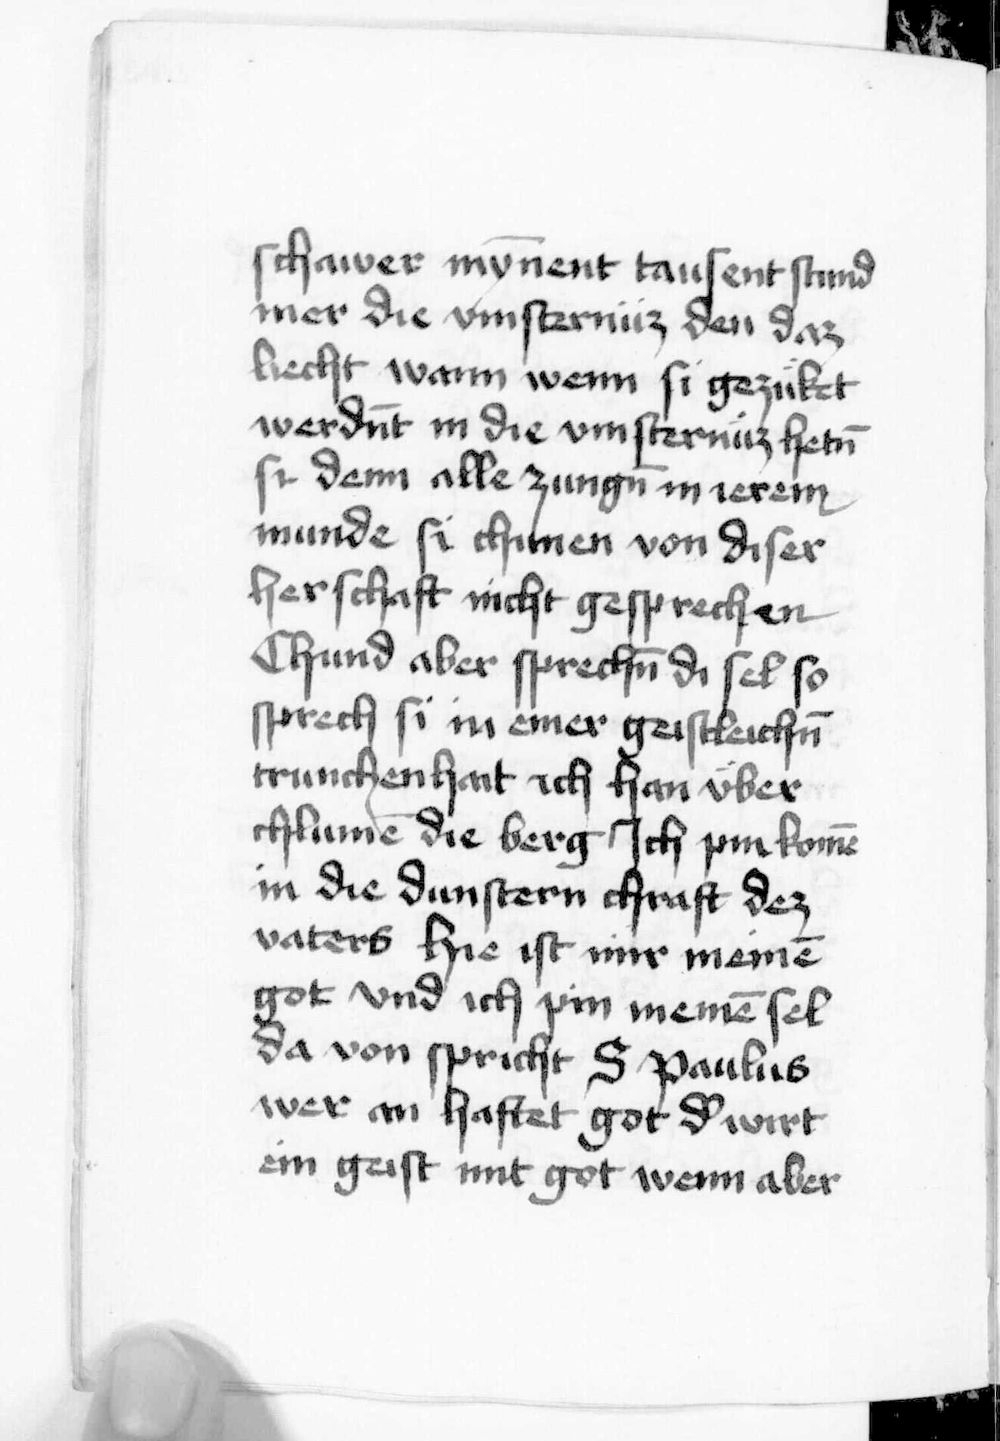 schawer mẏn̄ent tausent stund
mer die vinsternüz den daz
liecht wann wenn si gezüket
werdn̄t in die vinsternüz hetn̄
si denn alle zungn̄ in ierem
munde si chunen von diser
herschaft nicht gesprechen
Chund aber sprechn̄ di sel so
sprech si in einer geistleichn̄
trunchenhait ich han über
chlumē die berg Ich pin kom̄e
in die dunstern chraft dez
vaters hie ist mir meinē
got vnd ich pin meinē sel
da von spricht S paulus
wer an haftet got d͛ wirt
ein geist mit got wenn aber